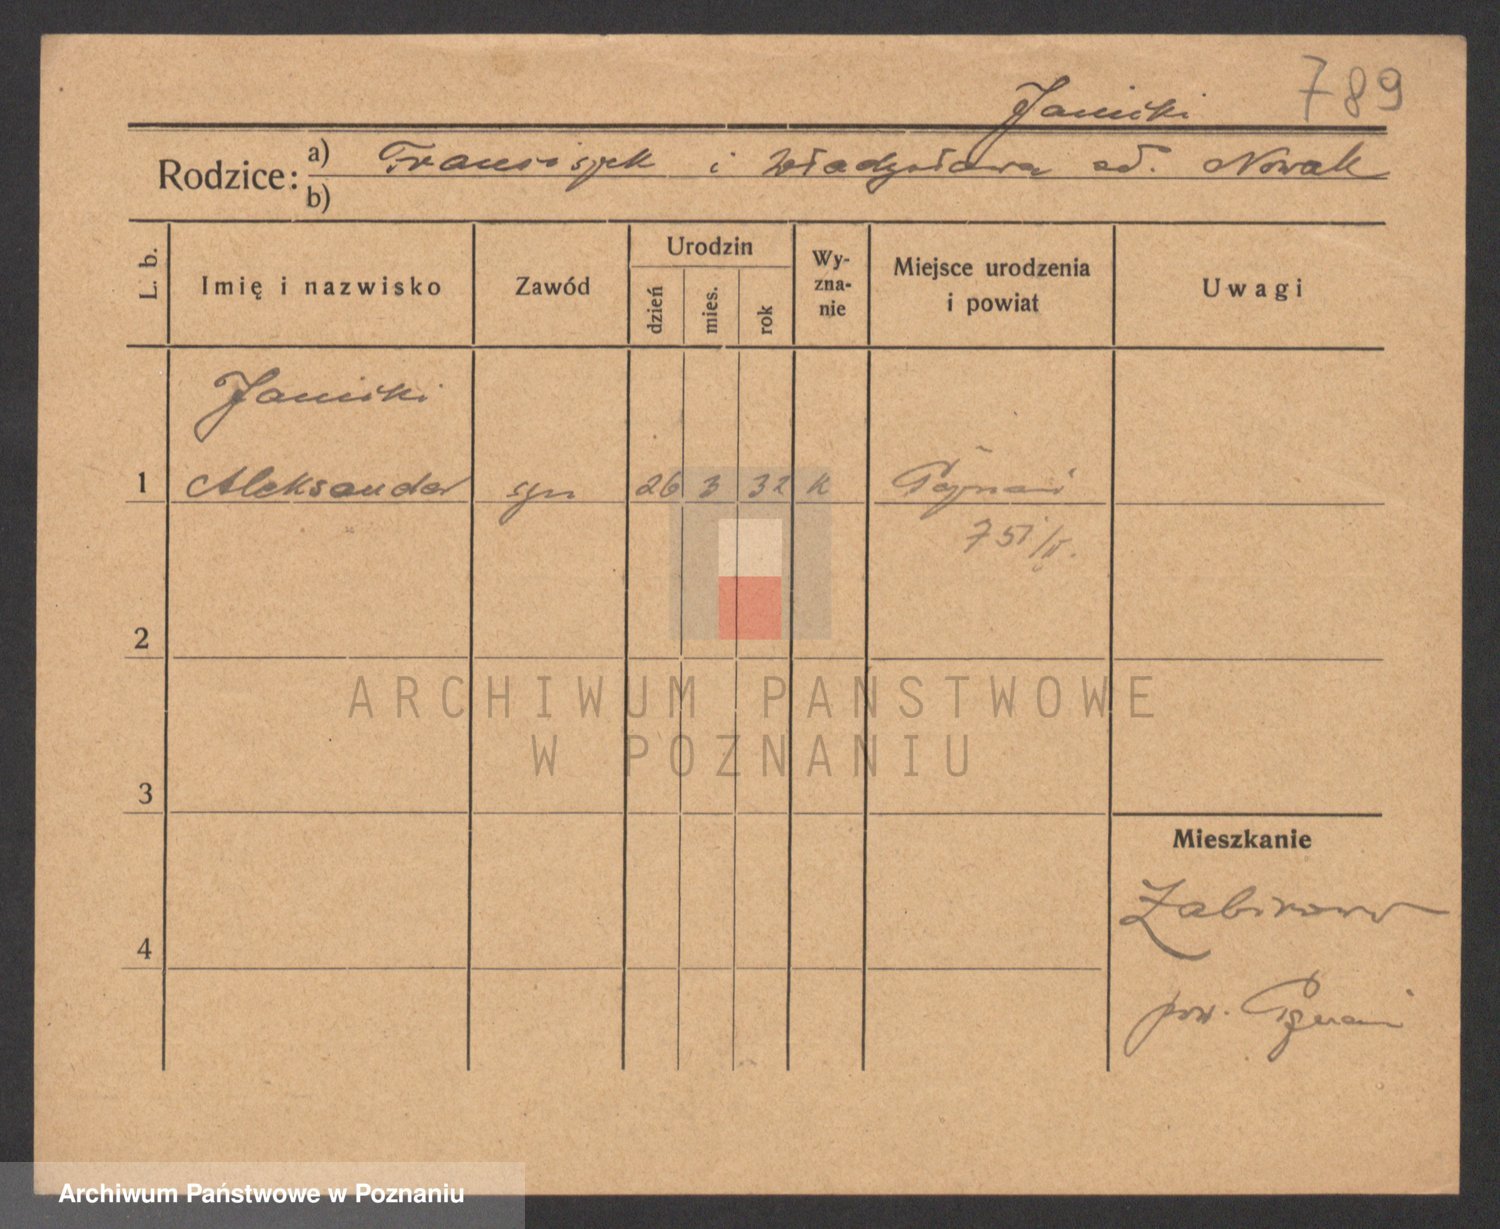 789
Janicki
Rodzice: a) Franciszek i Władysława zd. Nowak
b)
L. b.
Imię i nazwisko
Zawód
Urodzin
dzień
mies.
rok
Wy-
zna-
nie
Miejsce urodzenia
i powiat
Uwagi
Janicki
1 Aleksander syn 26 3 32 k Poznań
751/II.
2
3
4
Mieszkanie
Żabikowo
pow. Poznań
ARCHIWUM PAŃSTWOWE
W POZNANIU
Archiwum Państwowe w Poznaniu